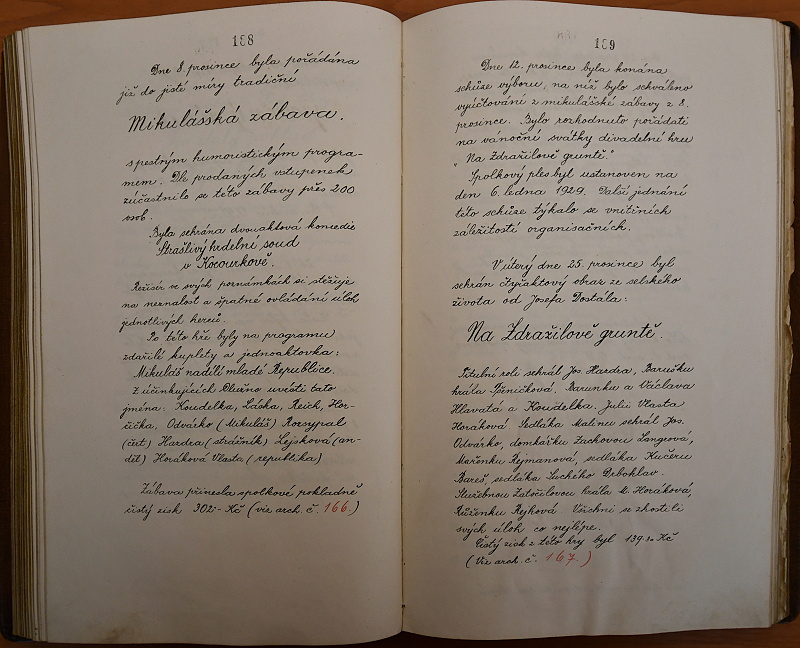 188
Dne 8. prosince byla pořádána
již do jisté míry tradiční
Mikulášská zábava.
s pestrým humoristickým progra-
mem. Dle prodaných vstupenek
zúčastnilo se této zábavy přes 200
osob.
Byla sehrána dvouaktová komedie
Strašlivý hrdelní soud
v Kocourkově.
Režisér ve svých poznámkách si stěžuje
na neznalost a špatné ovládání úloh
jednotlivých herců.
Po této hře byly na programu
zdařilé kuplety a jednoaktovka:
Mikuláš nadělí mladé Republice.
Z účinkujících dlužno uvésti tato
jména: Koudelka, Láska, Reich, Hor-
čička, Odvárko (Mikuláš) Rozsypal
(čert) Hardra (strážník) Lejsková (an-
děl) Horáková Vlasta (republika)
Zábava přinesla spolkové pokladně
čistý zisk 302·- Kč (viz arch. č. 166.)
189
Dne 12. prosince byla konána
schůze výboru, na níž bylo schváleno
vyúčtování z mikulášské zábavy z 8.
prosince. Bylo rozhodnuto pořádati
na vánoční svátky divadelní hru
„Na Zdražilově gruntě."
Spolkový ples byl ustanoven na
den 6. ledna 1929. Další jednání
této schůze týkalo se vnitřních
záležitostí organisačních.
V úterý dne 25. prosince byl
sehrán čtyřaktový obraz ze selského
života od Josefa Dostála:
Na Zdražilově gruntě.
Titulní roli sehrál Jos. Hardra, Barušku
hrála Pšeničková, Barunku a Václava
Hlavatá a Koudelka, Julii Vlasta
Horáková. Sedláka Malinu sehrál Jos.
Odvárko, domkářku Zuchovou Langrová,
Mařenku Rejmanová, sedláka Kučeru
Bareš, sedláka Suchého Drbohlav.
Služebnou Zatočilovou hrála M. Horáková,
Růženku Rejhová. Všichni se zhostili
svých úloh co nejlépe.
Čistý zisk z této hry byl 139.30 Kč
(Viz arch. č. 167.)